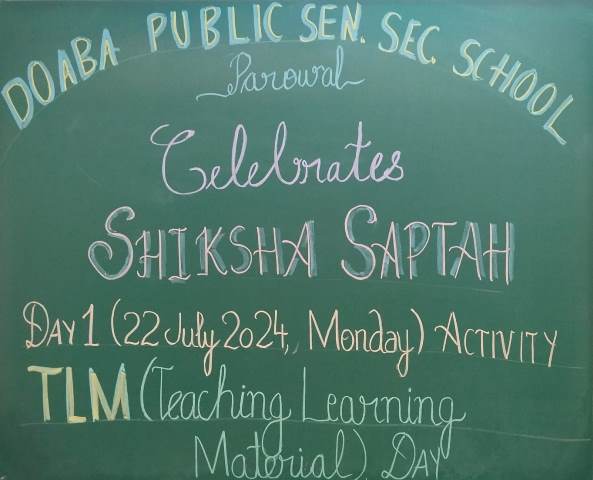 DOABA PUBLIC SEN. SEC. SCHOOL
Parowal
Celebrates
SHIKSHA SAPTAH
DAY 1 (22 July 2024, Monday) ACTIVITY
TLM (Teaching Learning
Material) DAY